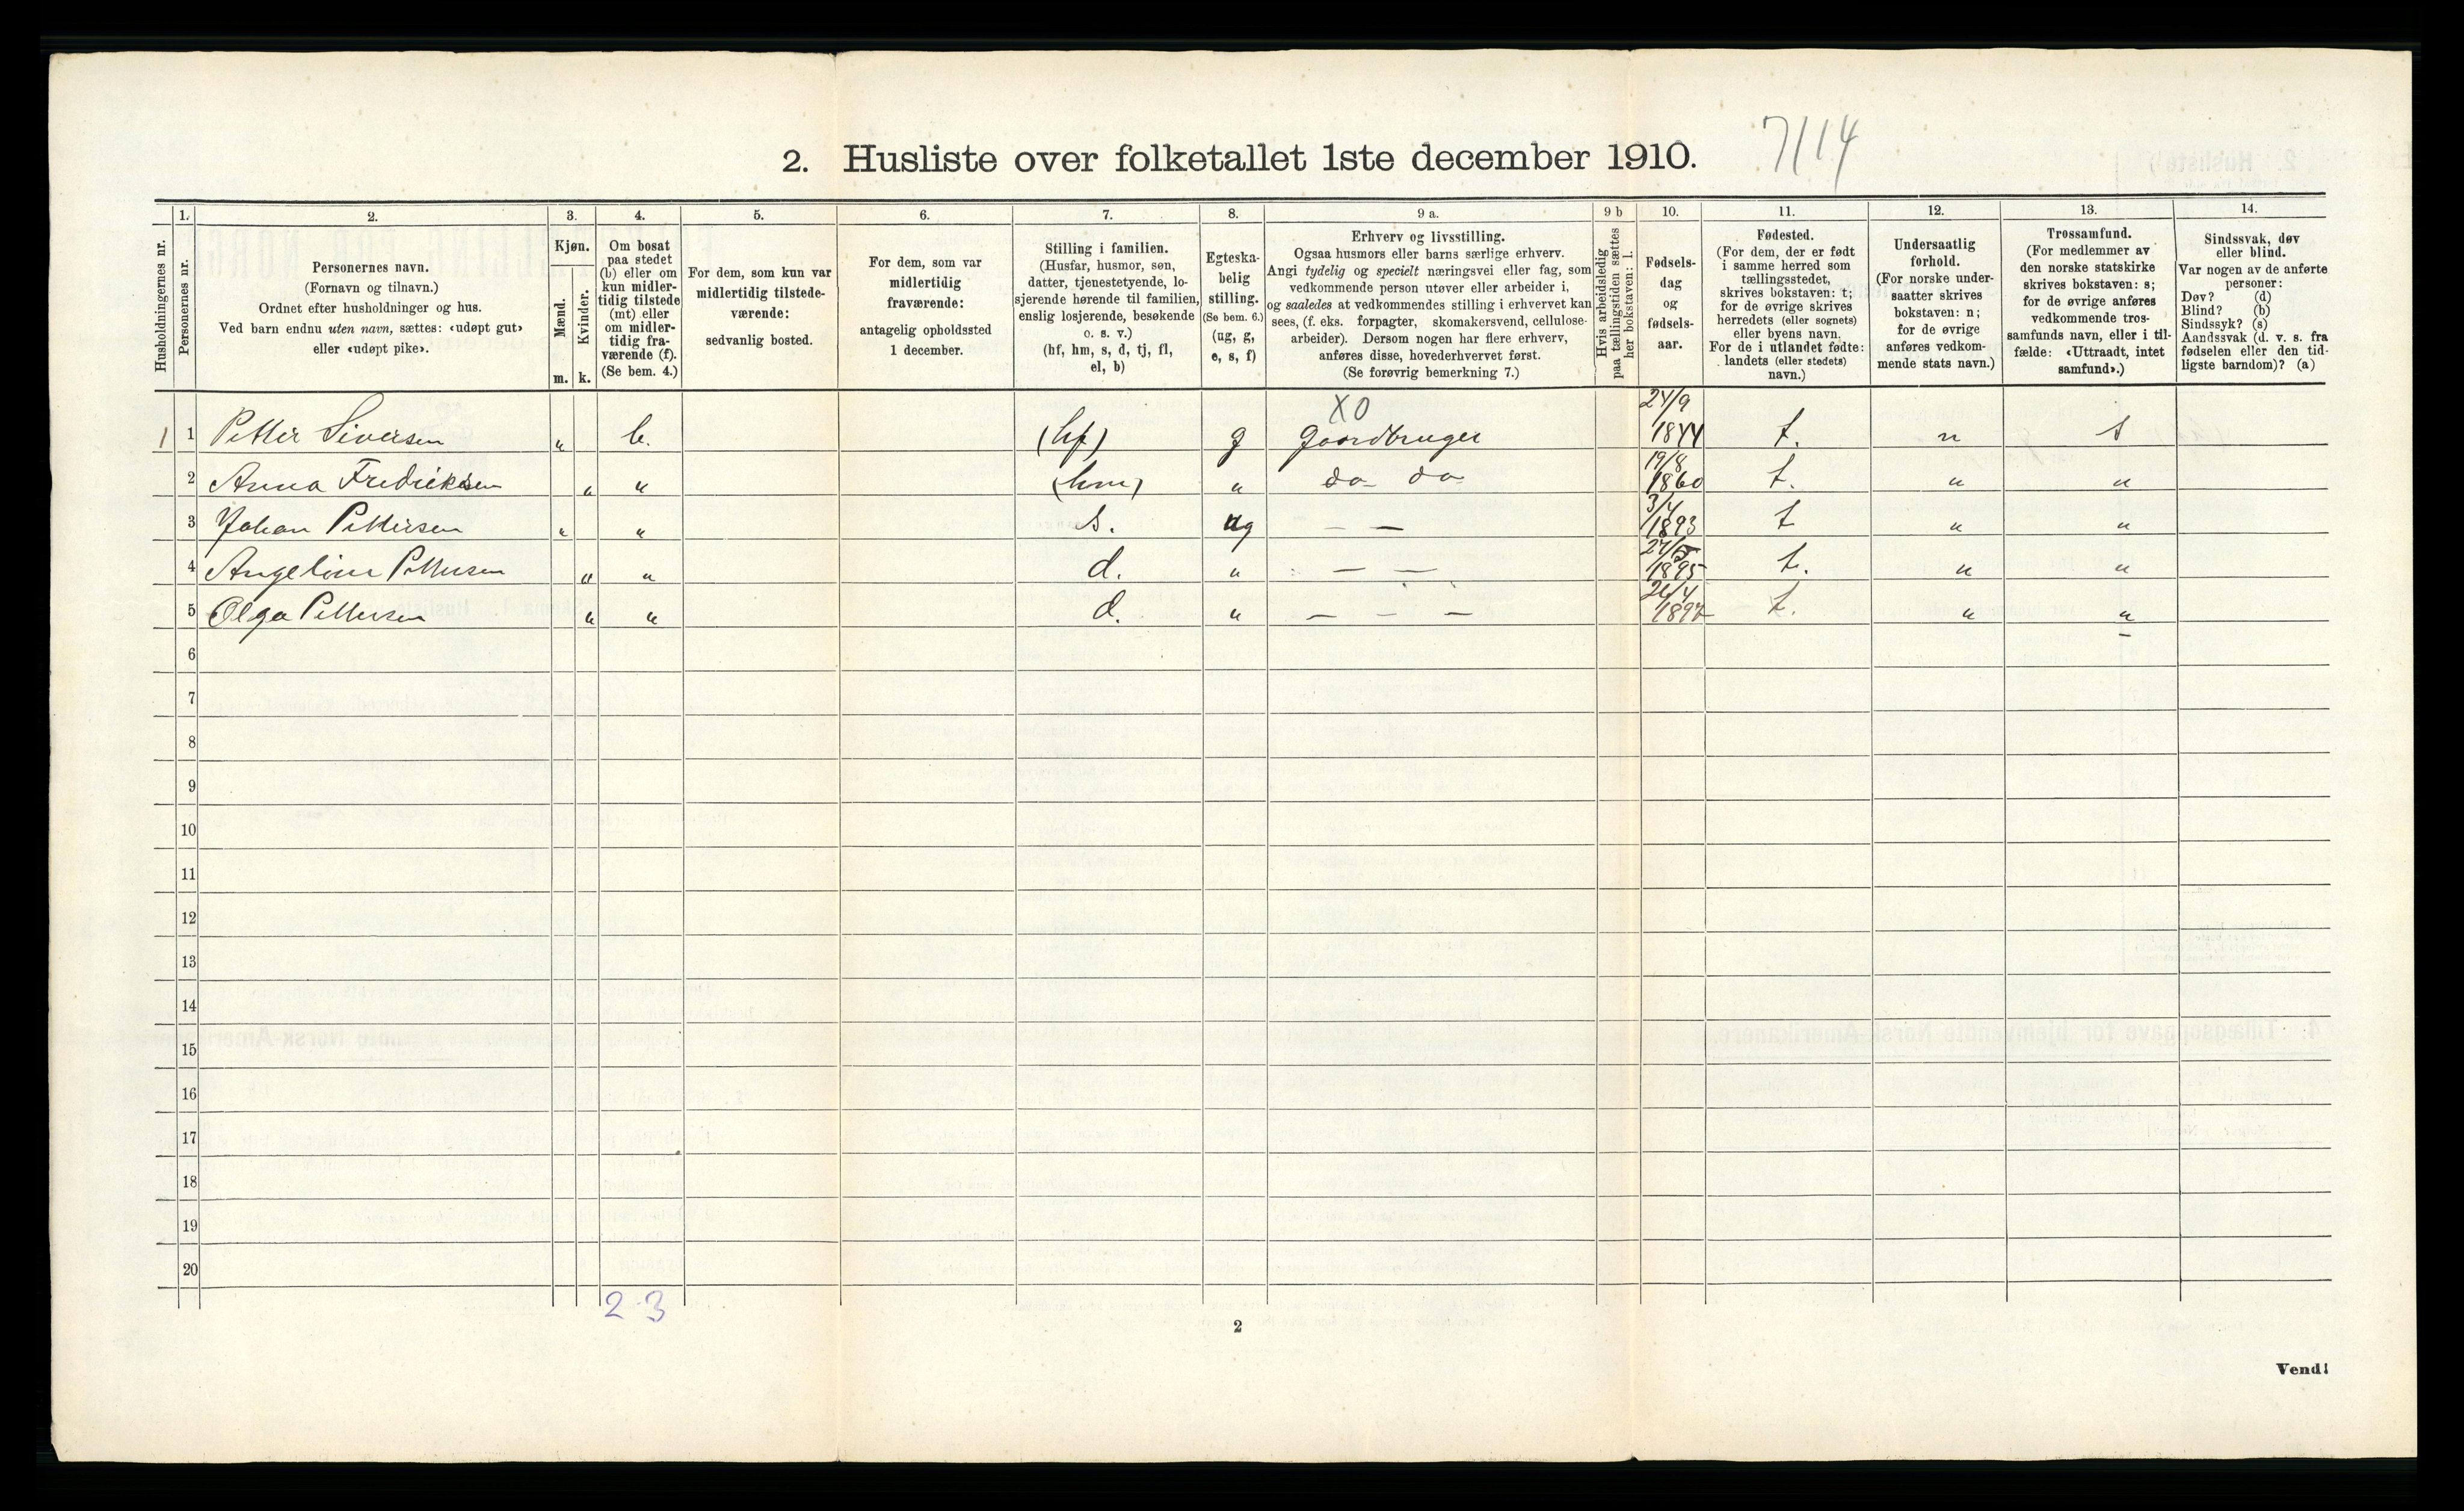 2. Husliste over folketallet 1ste december 1910.
7/14
Husholdningernes nr.
1.
Personernes nr.
2.
Personernes navn.
(Fornavn og tilnavn.)
Ordnet efter husholdninger og hus.
Ved barn endnu uten navn, sættes: «udøpt gut»
eller «udøpt pike».
3.
Kjøn.
Mænd.
Kvinder.
m. k.
4.
Om bosat
paa stedet
(b) eller om
kun midler-
tidig tilstede
(mt) eller
om midler-
tidig fra-
værende (f).
(Se bem. 4.)
5.
For dem, som kun var
midlertidig tilstede-
værende:
sedvanlig bosted.
6.
For dem, som var
midlertidig
fraværende:
antagelig opholdssted
1 december.
7.
Stilling i familien.
(Husfar, husmor, søn,
datter, tjenestetyende, lo-
sjerende hørende til familien,
enslig losjerende, besøkende
o. s. v.)
(hf, hm, s, d, tj, fl,
el, b)
8.
Egteska-
belig
stilling.
(Se bem. 6.)
(ug, g,
e, s, f)
9 a.
Erhverv og livsstilling.
Ogsaa husmors eller barns særlige erhverv.
Angi tydelig og specielt næringsvei eller fag, som
vedkommende person utøver eller arbeider i,
og saaledes at vedkommendes stilling i erhvervet kan
sees, (f. eks. forpagter, skomakersvend, cellulose-
arbeider). Dersom nogen har flere erhverv,
anføres disse, hovederhvervet først.
(Se forøvrig bemerkning 7.)
9 b
Hvis arbeidsledig
paa tællingstiden sættes
her bokstaven: l.
10.
Fødsels-
dag
og
fødsels-
aar.
11.
Fødested.
(For dem, der er født
i samme herred som
tællingsstedet,
skrives bokstaven: t;
for de øvrige skrives
herredets (eller sognets)
eller byens navn.
For de i utlandet fødte:
landets (eller stedets)
navn.)
12.
Undersaatlig
forhold.
(For norske under-
saatter skrives
bokstaven: n;
for de øvrige
anføres vedkom-
mende stats navn.)
13.
Trossamfund.
(For medlemmer av
den norske statskirke
skrives bokstaven: s;
for de øvrige anføres
vedkommende tros-
samfunds navn, eller i til-
fælde: «Uttraadt, intet
samfund».)
14.
Sindssvak, døv
eller blind.
Var nogen av de anførte
personer:
Døv? (d)
Blind? (b)
Sindssyk? (s)
Aandssvak (d. v. s. fra
fødselen eller den tid-
ligste barndom)? (a)
XO
1 1 Petter Siversen " b. (hf) g Gaardbruger 24/9 1844 t. n s
2 Anna Fredriksen " " (hm) " do do 19/8 1860 t. " "
3 Johan Pettersen " " s. ug — — 3/4 1893 t " "
4 Angeline Pettersen " " d. " — — 1895 t. " "
5 Olga Pettersen " " d. " — — — 26/4 t. " "
6
7
8
9
10
11
12
13
14
15
16
17
18
19
20
2 3
2
Vend!